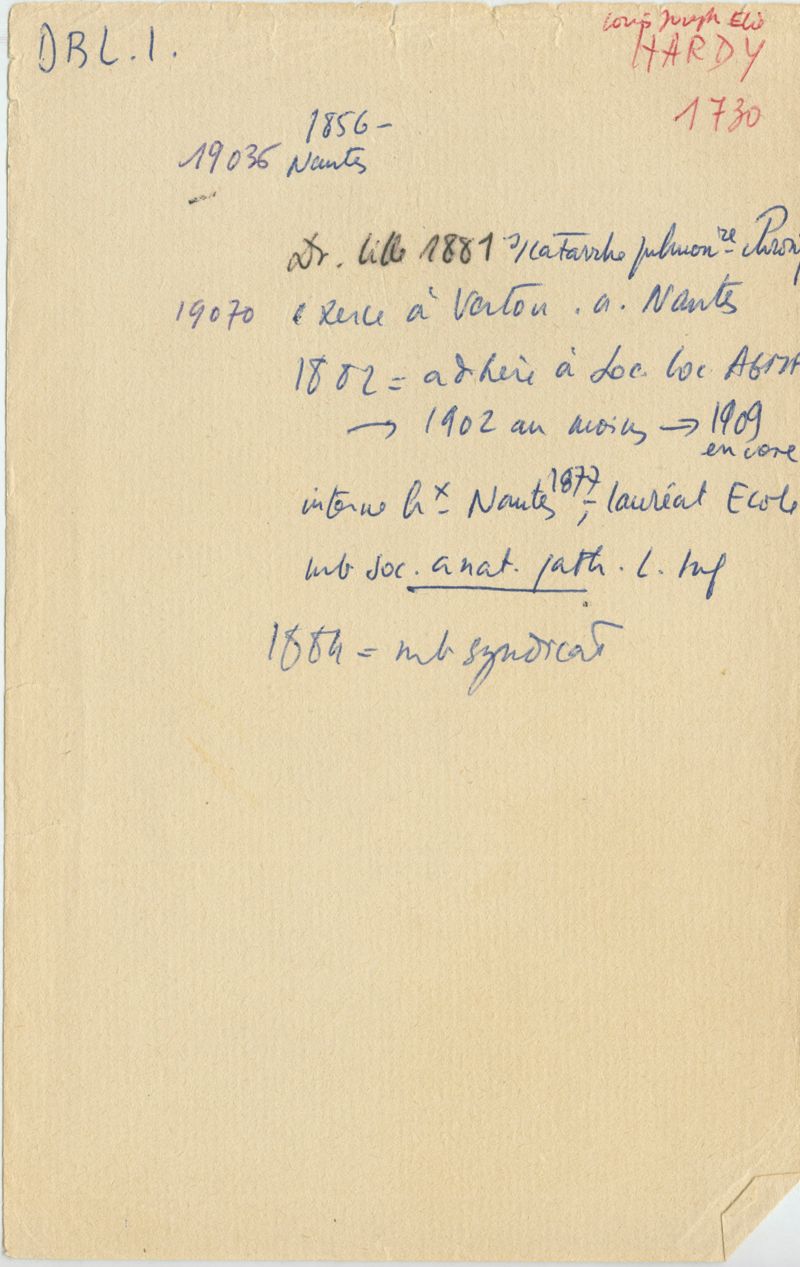 DBL.1.
Louis Joseph Elie
HARDY
1730
1856 -
19035 Nantes
Dr. Lille 1881 s/catarrhe pulmonre chroniq
19070 exerce à Vertou . a. Nantes
1882 = adhère à Soc loc AGMF
→ 1902 au moins → 1909
encore
interne hx Nantes 1877, lauréat Ecole
mb soc. anat. path. L. Inf
1884 = mb syndicat